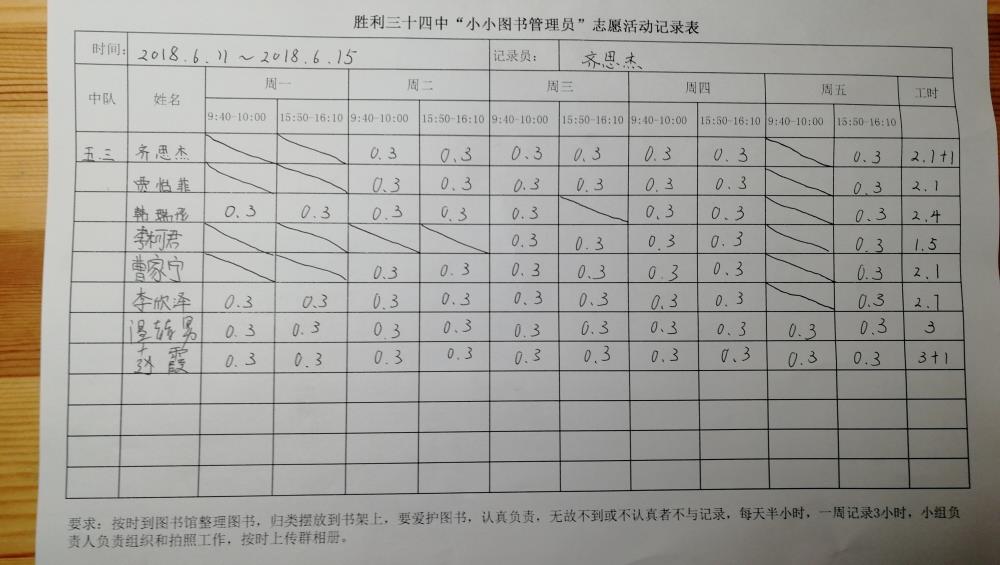 胜利三十四中“小小图书管理员”志愿活动记录表
时间: 2018.6.11～2018.6.15 记录员: 齐思杰
中队 姓名 周一 周二 周三 周四 周五 工时
9:40-10:00 15:50-16:10 9:40-10:00 15:50-16:10 9:40-10:00 15:50-16:10 9:40-10:00 15:50-16:10 9:40-10:00 15:50-16:10
五.三 齐思杰 0.3 0.3 0.3 0.3 0.3 0.3 0.3 2.1+1
贾怡菲 0.3 0.3 0.3 0.3 0.3 0.3 0.3 2.1
韩瑞 0.3 0.3 0.3 0.3 0.3 0.3 0.3 0.3 2.4
李柯君 0.3 0.3 0.3 0.3 0.3 1.5
曹家宁 0.3 0.3 0.3 0.3 0.3 0.3 0.3 2.1
李欣泽 0.3 0.3 0.3 0.3 0.3 0.3 0.3 0.3 0.3 2.7
温 男 0.3 0.3 0.3 0.3 0.3 0.3 0.3 0.3 0.3 0.3 3
赵霞 0.3 0.3 0.3 0.3 0.3 0.3 0.3 0.3 0.3 0.3 3+1
要求：按时到图书馆整理图书，归类摆放到书架上，要爱护图书，认真负责，无故不到或不认真者不与记录，每天半小时，一周记录3小时，小组负
责人负责组织和拍照工作，按时上传群相册。